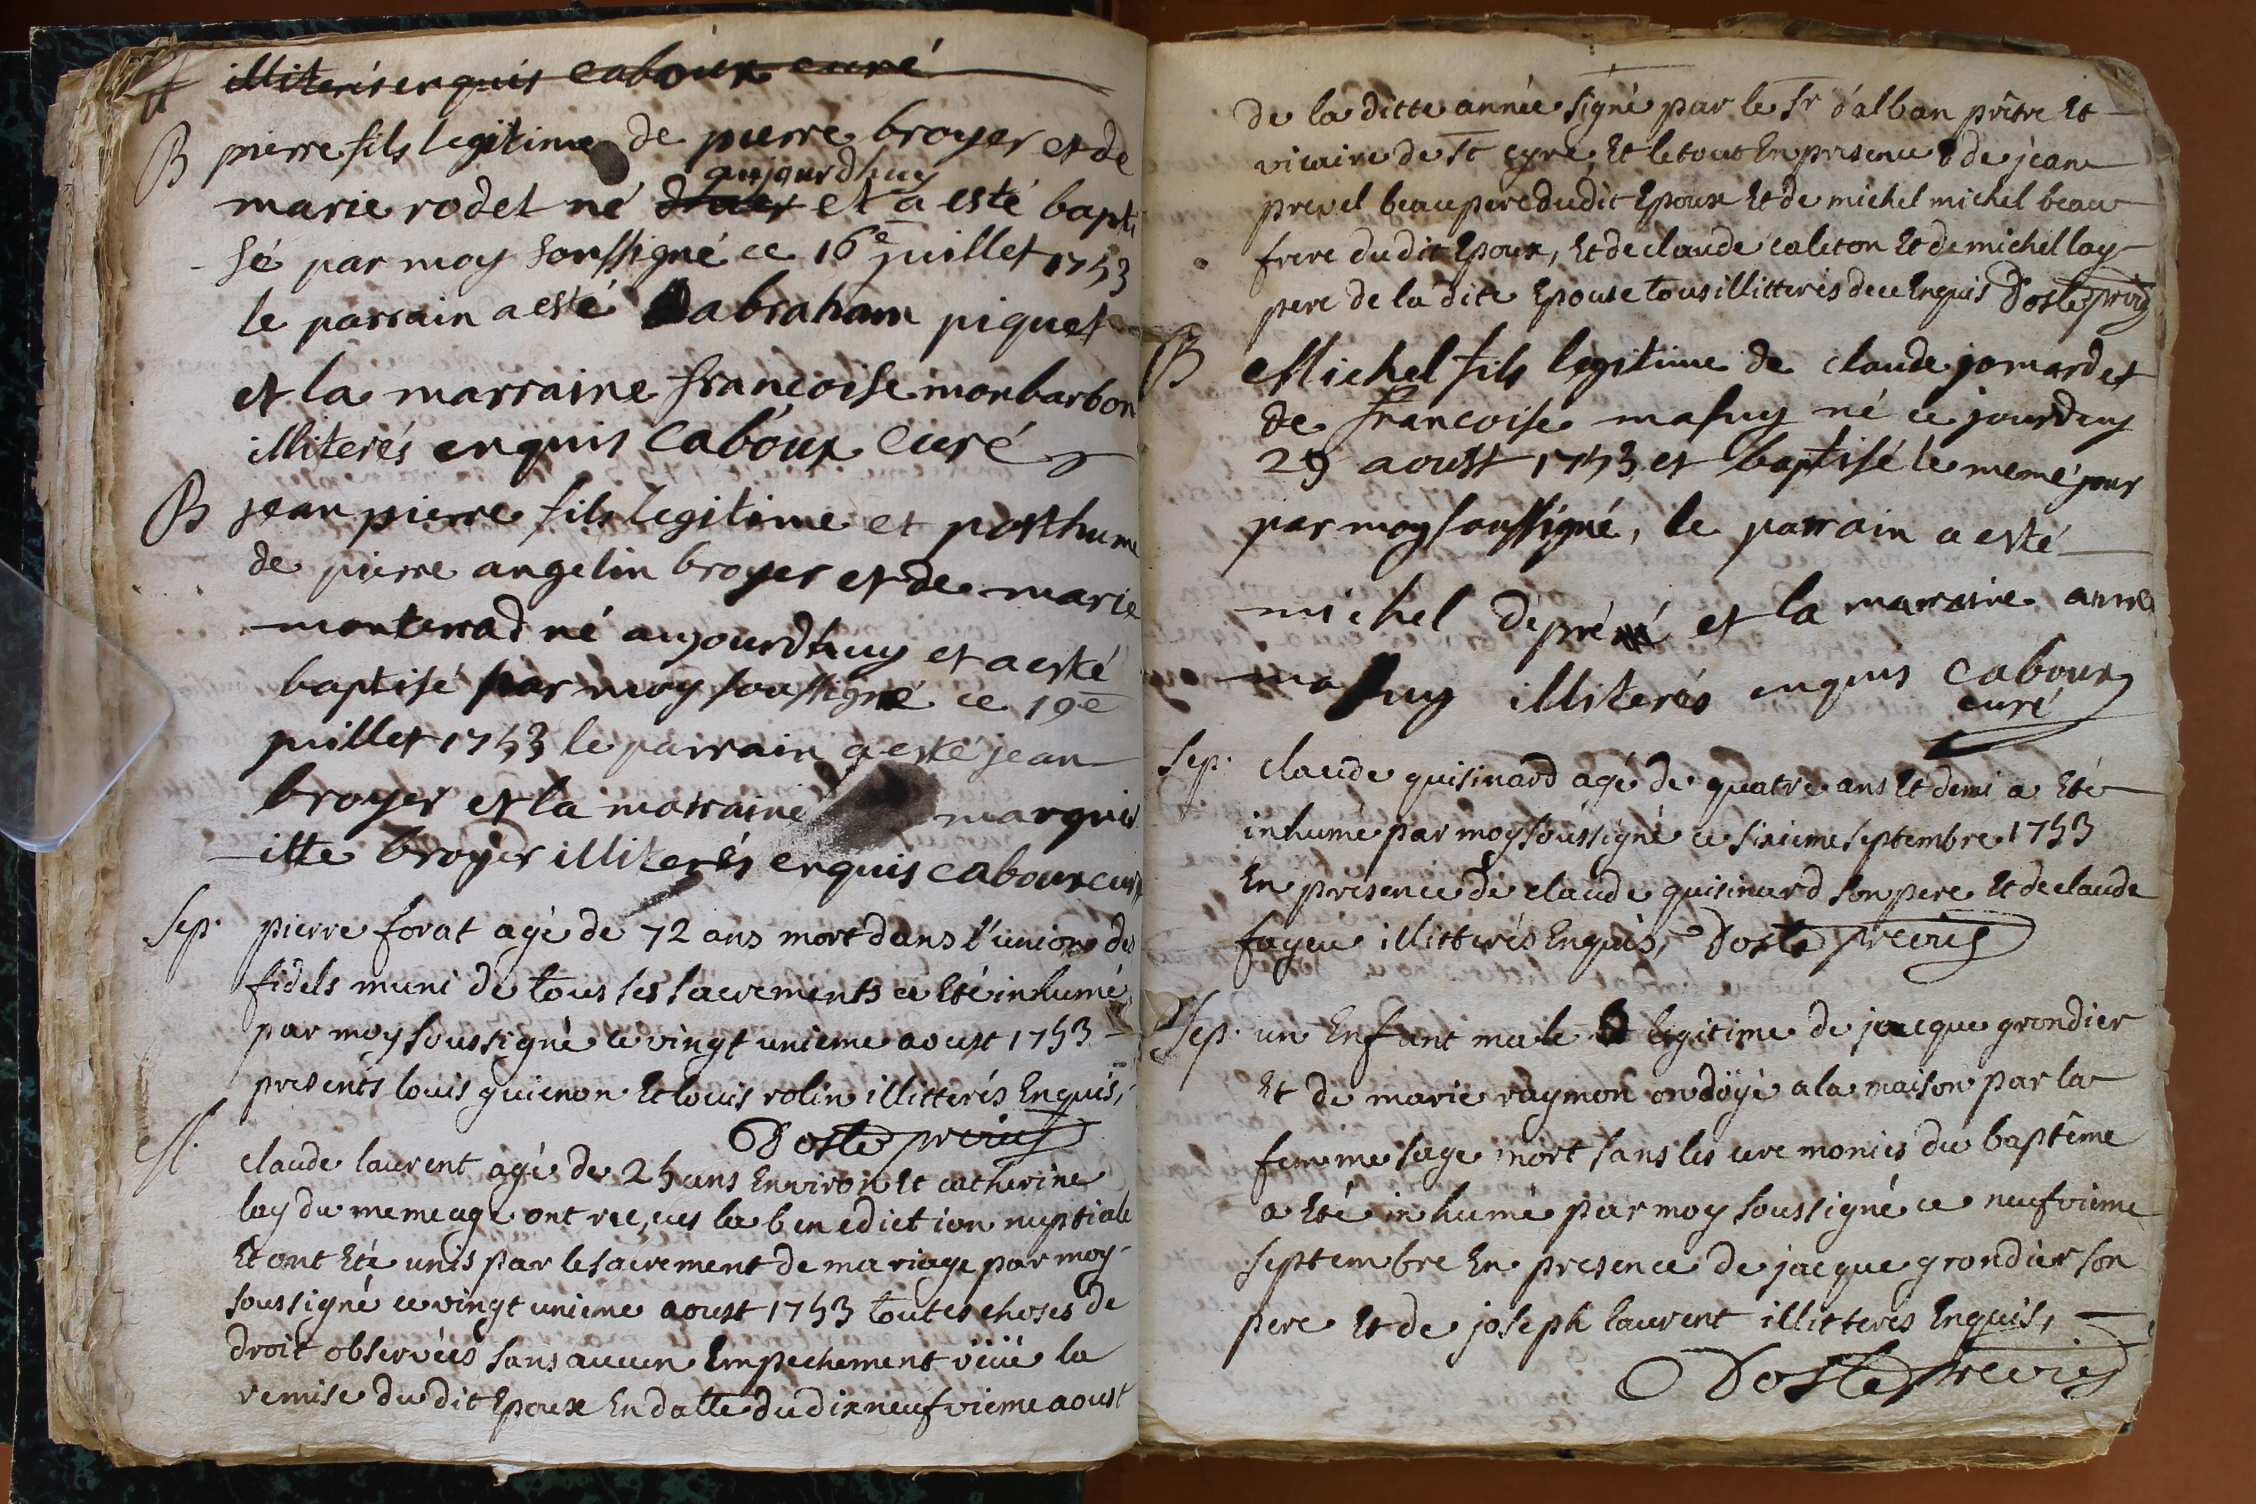 illiterés enquis caboux curé
B pierre fils legitime de pierre broyer et de
aujourdhuy
marie rodet né et a esté bapti
sé par moy soussigné ce 16e juillet 1753
le parrain a esté abraham piquet
et la marraine francoise monbarbon
illiterés enquis caboux curé
B jean pierre fils legitime et posthume
de pierre angelin broyer et de marie
monterrad né aujourdhuy et a esté
baptisé par moy soussigné ce 19e
juillet 1753 le parrain a esté jean
broyer et la marraine marguer
itte broyer illiterés enquis caboux curé
Sep. pierre forat agé de 72 ans mort dans l'union des
fidels muni de tous les sacrements a Eté inhumé
par moy soussigné ce vingt unieme aoust 1753
presents louis guienon Et louis rolin illitterés Enquis,
Doste previc
M. claude laurent agé de 25 ans Environ Et catherine
lay du meme age ont reçues la benediction nuptiale
Et ont Eté unis par le sacrement de mariage par moy
soussigné ce vingt unieme aoust 1753 toutes choses de
droit observées sans aucun Empechement vëuë la
remise du dit Epoux En datte du dixneufvieme aoust
de la ditte année signé par le Sr d'alban prêtre Et
vicaire de St cyre Et le tout En presence de jean
prevel beaupere dudit Epoux Et de michel michel beau
frere dudit Epoux, Et de claude caliton Et de michel lay
pere de la dite Epouse tous illitterés de ce Enquis Doste previc
B Michel fils legitime de claude jomard et
de francoise masuy né ce jourdhuy
29 aoust 1753 et baptisé le meme jour
par moy soussigné, le parrain a esté
michel dépré et la marraine anne
masuy illiterés enquis caboux
curé
Sep. claude quisinard agé de quatre ans Et demi a Eté
inhumé par moy soussigné ce sixieme septembre 1753
En presence de claude quisinard son pere Et de claude
fayeu illitterés Enquis, Doste previc
Sep. un Enfant male legitime de jacque grondier
Et de marie raymon ondöyé a la maison par la
femme sage mort sans les ceremonies du baptême
a Eté inhumé par moy soussigné ce neufvieme
septembre En presence de jacque grondier son
pere Et de joseph laurent illitterés Enquis,
Doste previc